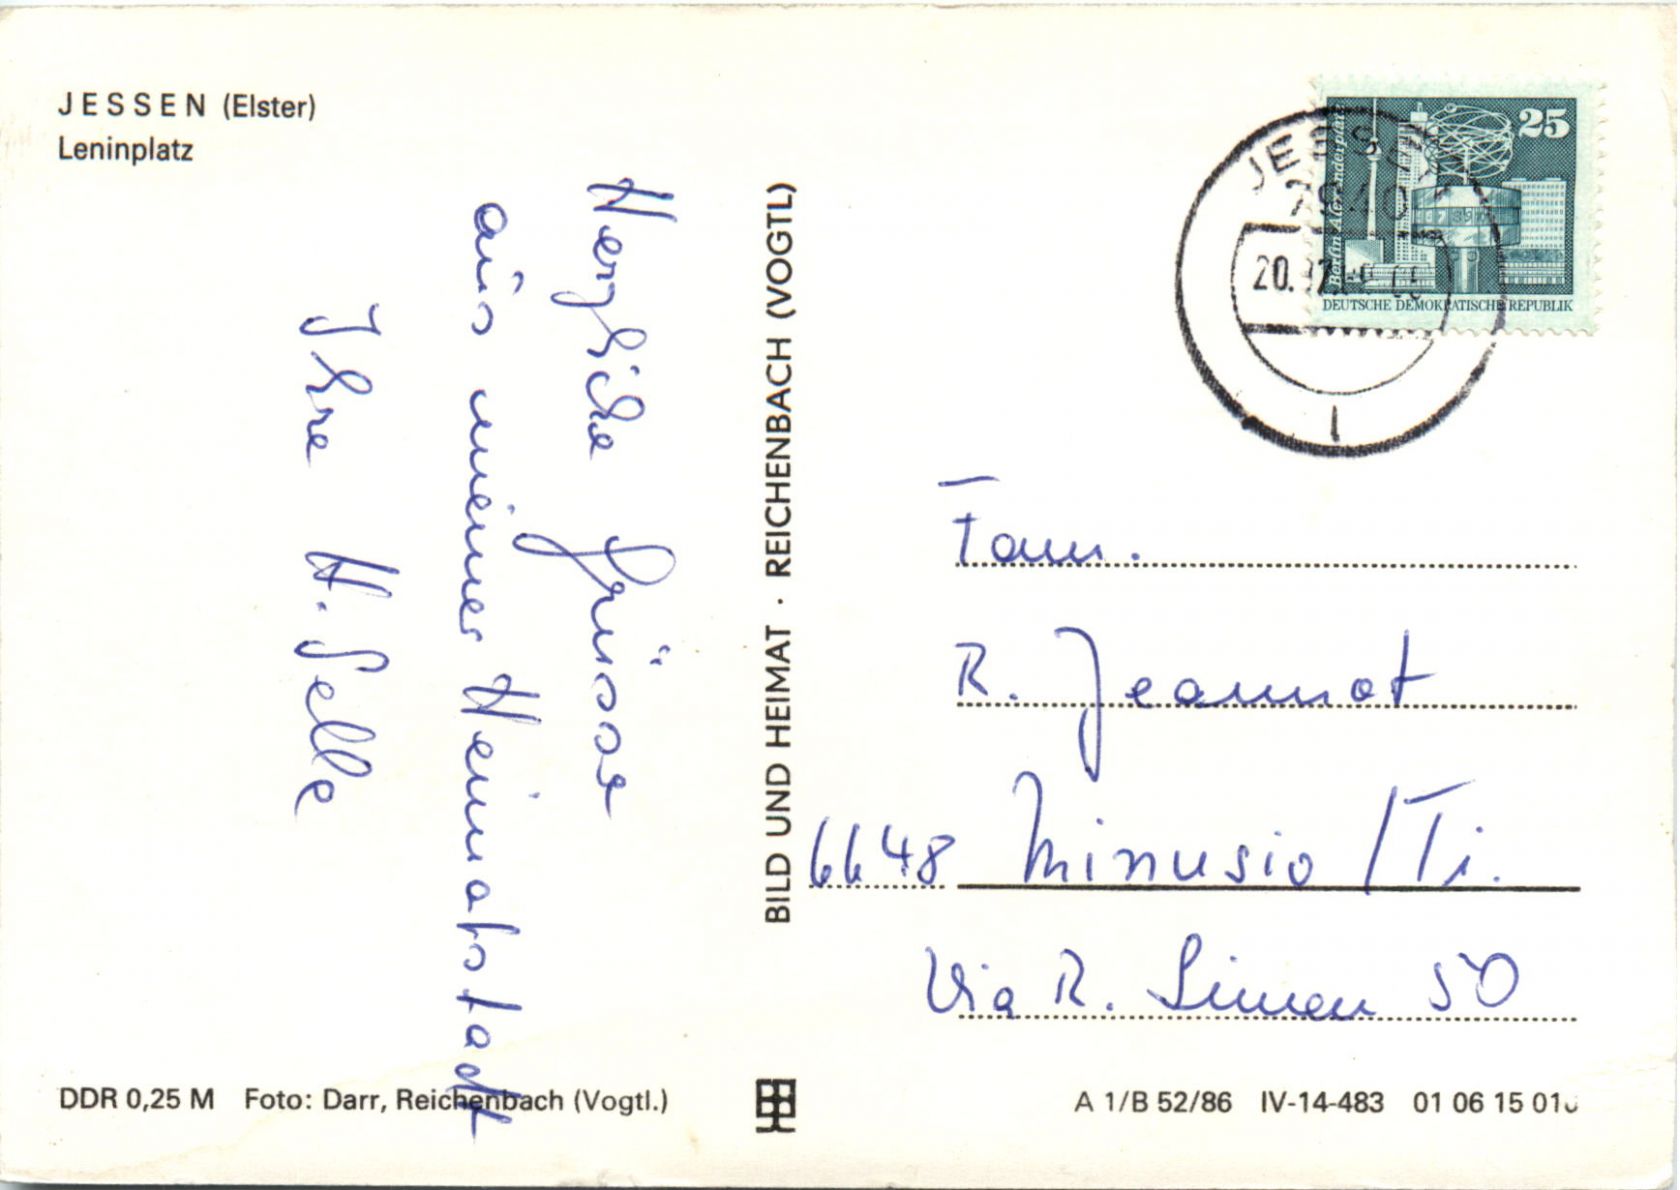 JESSEN (Elster)
Leninplatz
Herzliche Grüsse
aus meiner Heimatstadt
Ihre H. Selle
BILD UND HEIMAT · REICHENBACH (VOGTL)
25
Berlin Alexanderplatz
DEUTSCHE DEMOKRATISCHE REPUBLIK
JESSEN
7940
20.
Fam.
R. Jeannot
6648 Minusio / Ti.
Via R. Simen 50
DDR 0,25 M Foto: Darr, Reichenbach (Vogtl.)
A 1/B 52/86 IV-14-483 01 06 15 01